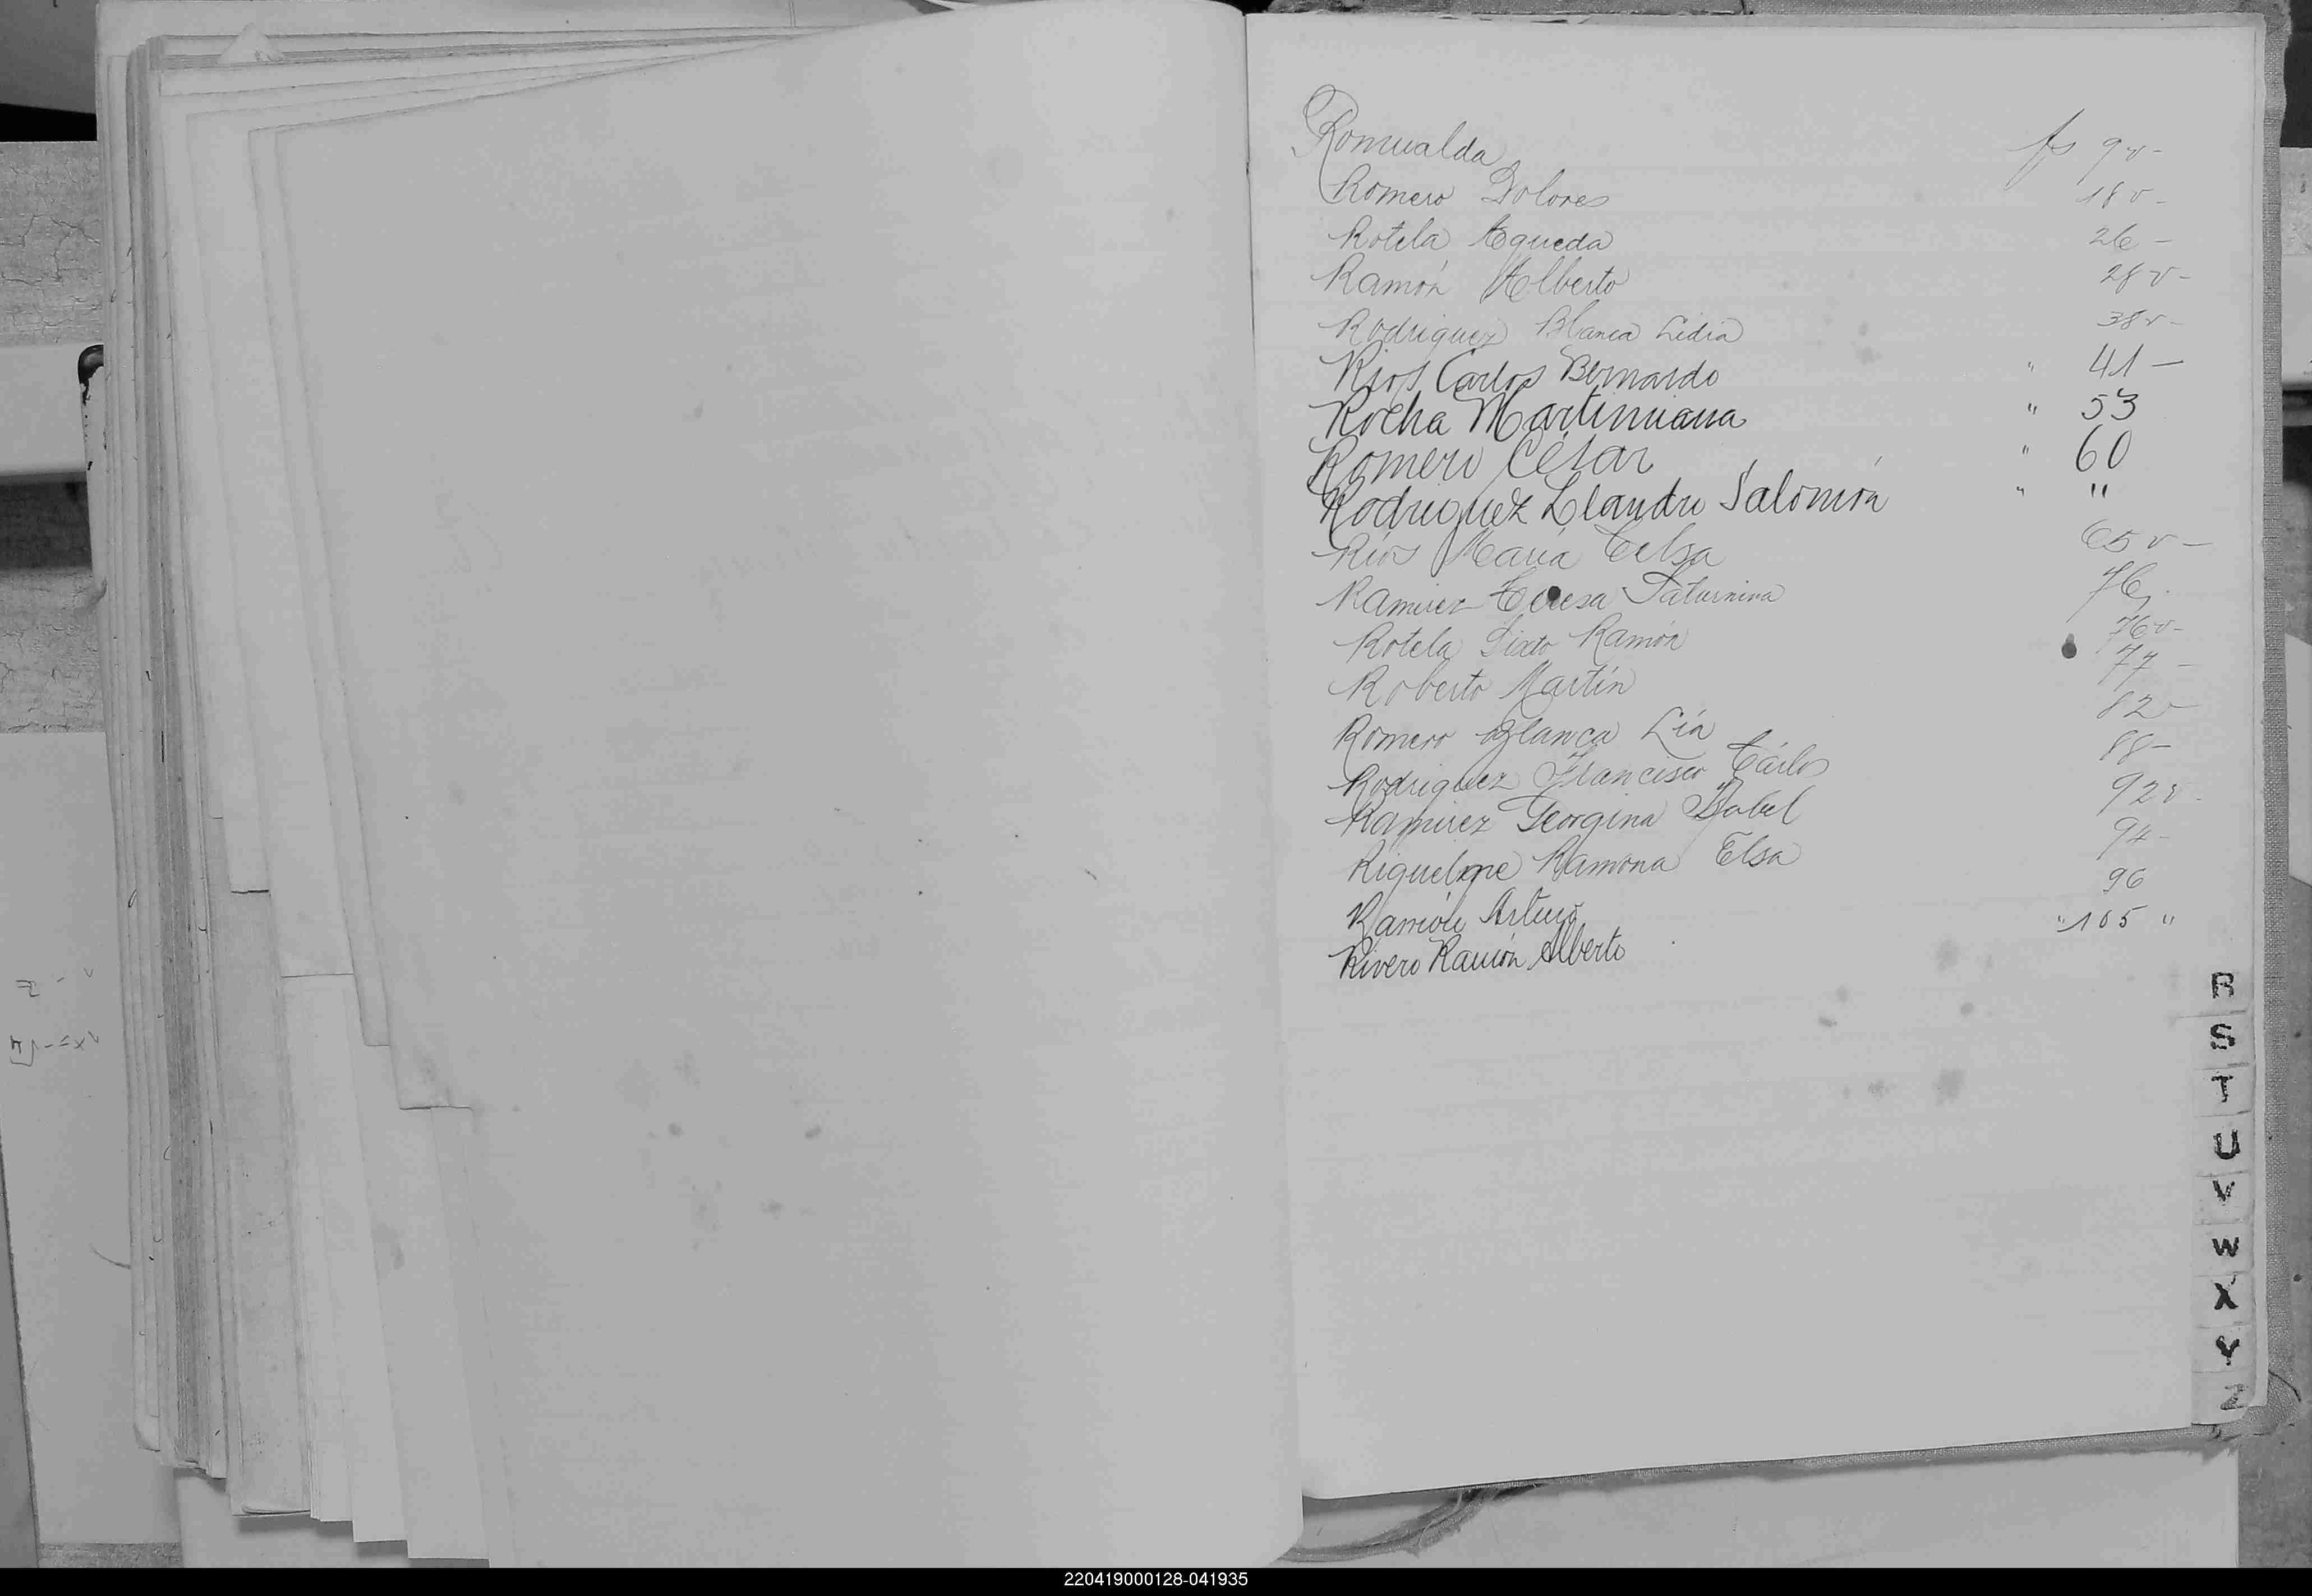 Romualda fs 9v-
Romero Dolores 18v-
Rotela Agueda 26-
Ramón Alberto 28v-
Rodriguez Blanca Lidia 38v-
Rios Carlos Bernardo " 41-
Rocha Martiniana " 53
Romero César " 60
Rodriguez Leandro Salomón " "
Ríos María Celsa 65v-
Ramirez Teresa Saturnina 76
Rotela Sixto Ramón 76v-
Roberto Martín 77-
Romero Blanca Lía 82-
Rodriguez Francisco Cárlos 88-
Ramirez Georgina Isabel 92v-
Riquelme Ramona Elsa 94-
Ramón Arturo 96
Rivero Ramón Alberto " 105 "
R
S
T
U
V
W
X
Y
Z
220419000128-041935